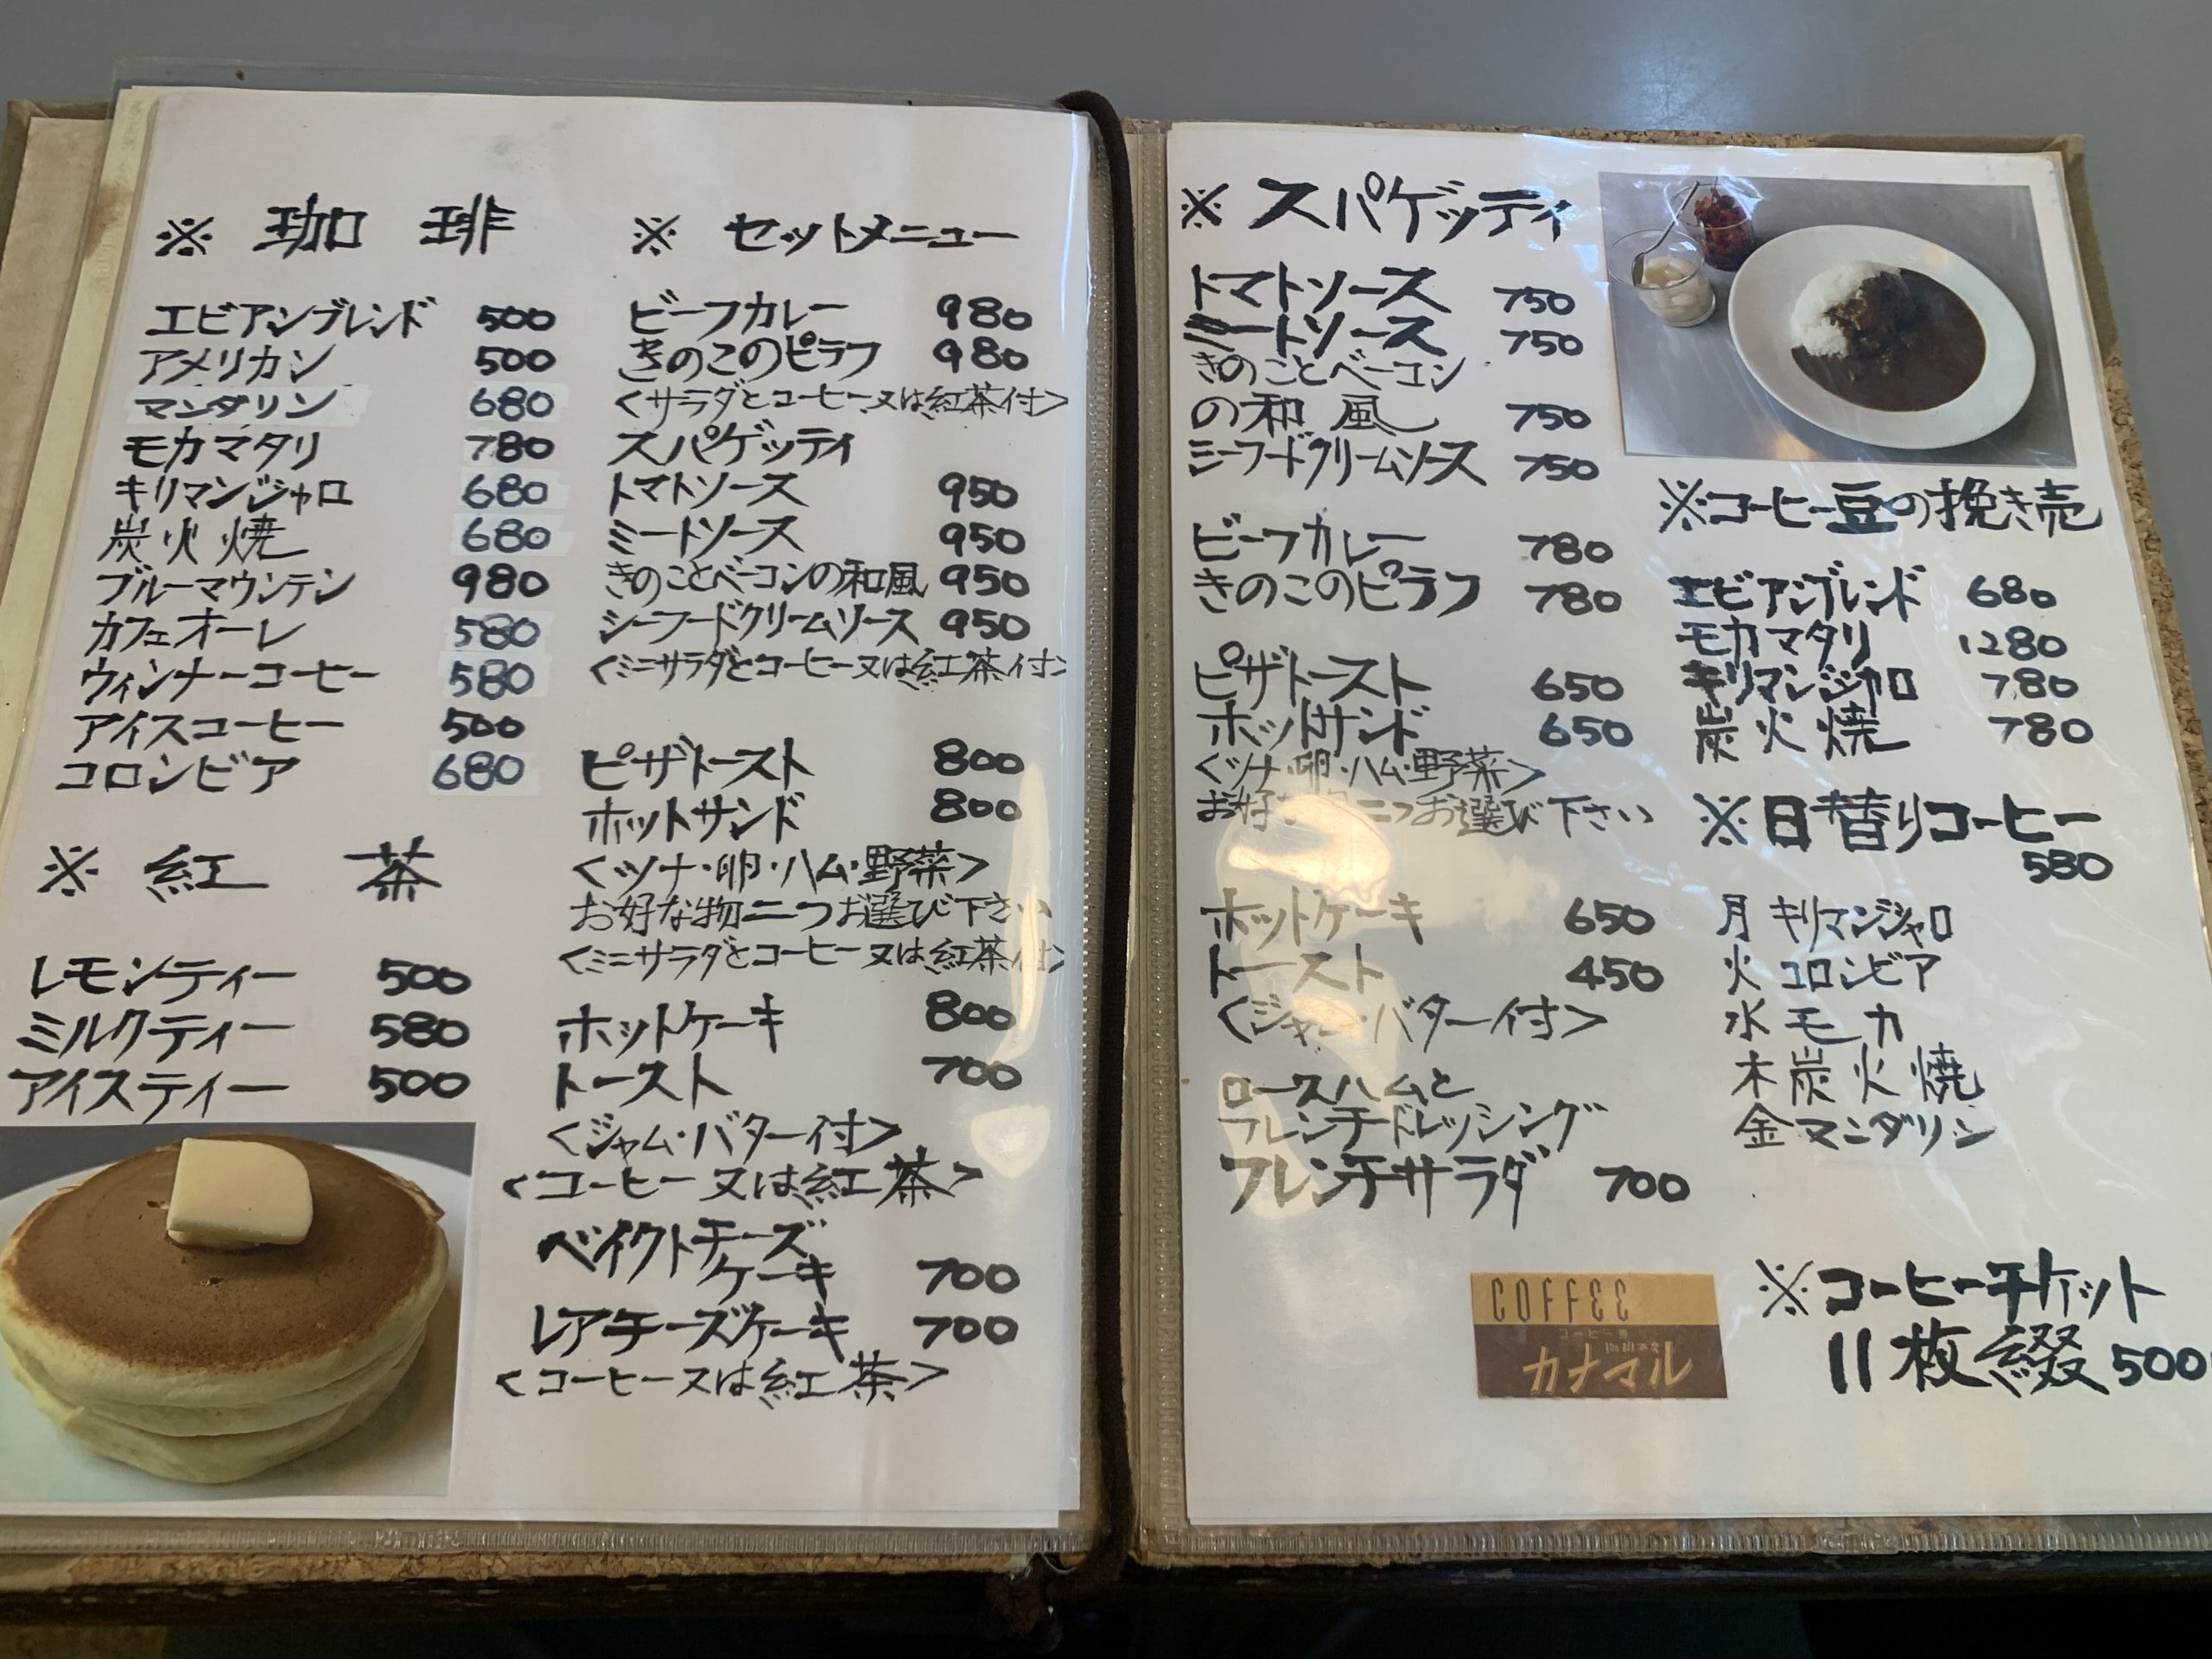 ※ 珈琲
エビアンブレンド 500
アメリカン 500
マンダリン 680
モカマタリ 780
キリマンジャロ 680
炭火焼 680
ブルーマウンテン 980
カフェオーレ 580
ウィンナーコーヒー 580
アイスコーヒー 500
コロンビア 680
※ 紅茶
レモンティー 500
ミルクティー 580
アイスティー 500
※ セットメニュー
ビーフカレー 980
きのこのピラフ 980
<サラダとコーヒー又は紅茶付>
スパゲッティ
トマトソース 950
ミートソース 950
きのことベーコンの和風 950
シーフードクリームソース 950
<ミニサラダとコーヒー又は紅茶付>
ピザトースト 800
ホットサンド 800
<ツナ・卵・ハム・野菜>
お好な物二つお選び下さい
<ミニサラダとコーヒー又は紅茶付>
ホットケーキ 800
トースト 700
<ジャム・バター付>
<コーヒー又は紅茶>
ベイクトチーズ
ケーキ 700
レアチーズケーキ 700
<コーヒー又は紅茶>
※ スパゲッティ
トマトソース 750
ミートソース 750
きのことベーコン
の和風 750
シーフードクリームソース 750
ビーフカレー 780
きのこのピラフ 780
ピザトースト 650
ホットサンド 650
<ツナ・卵・ハム・野菜>
お好な物二つお選び下さい
ホットケーキ 650
トースト 450
<ジャム・バター付>
ロースハムと
フレンチドレッシング
フレンチサラダ 700
※コーヒー豆の挽き売
エビアンブレンド 680
モカマタリ 1280
キリマンジャロ 780
炭火焼 780
※日替りコーヒー
580
月 キリマンジャロ
火 コロンビア
水 モカ
木 炭火焼
金 マンダリン
COFFEE
カナマル
※コーヒーチケット
11枚綴 500